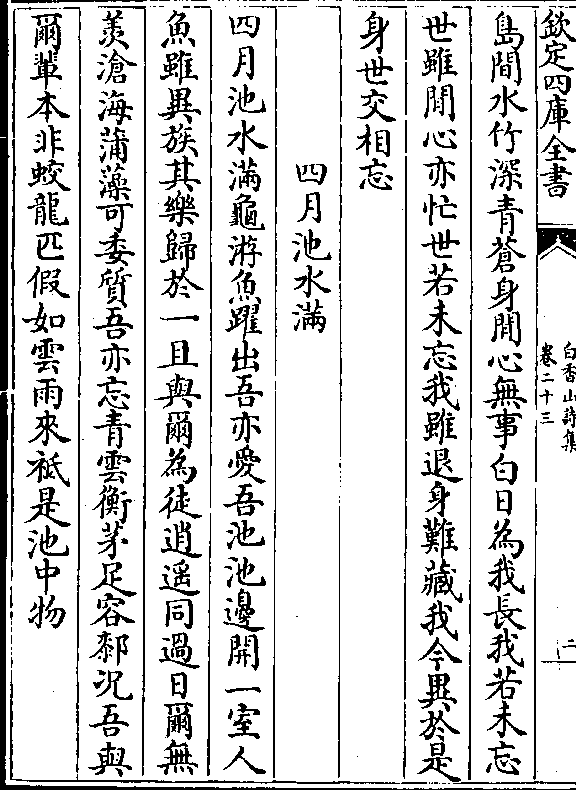 欽定四庫全書
白香山詩集
卷二十三
二
島間水竹深青蒼身閒心無事白日為我長我若未忘
世雖閒心亦忙世若未忘我雖退身難藏我今異於是
身世交相忘
四月池水滿
四月池水滿龜游魚躍出吾亦愛吾池池邊開一室人
魚雖異族其樂歸於一且與爾為徒逍遥同過日爾無
羨滄海蒲藻可委質吾亦忘青雲衡茅足容䣛况吾與
爾輩本非蛟龍匹假如雲雨來祗是池中物